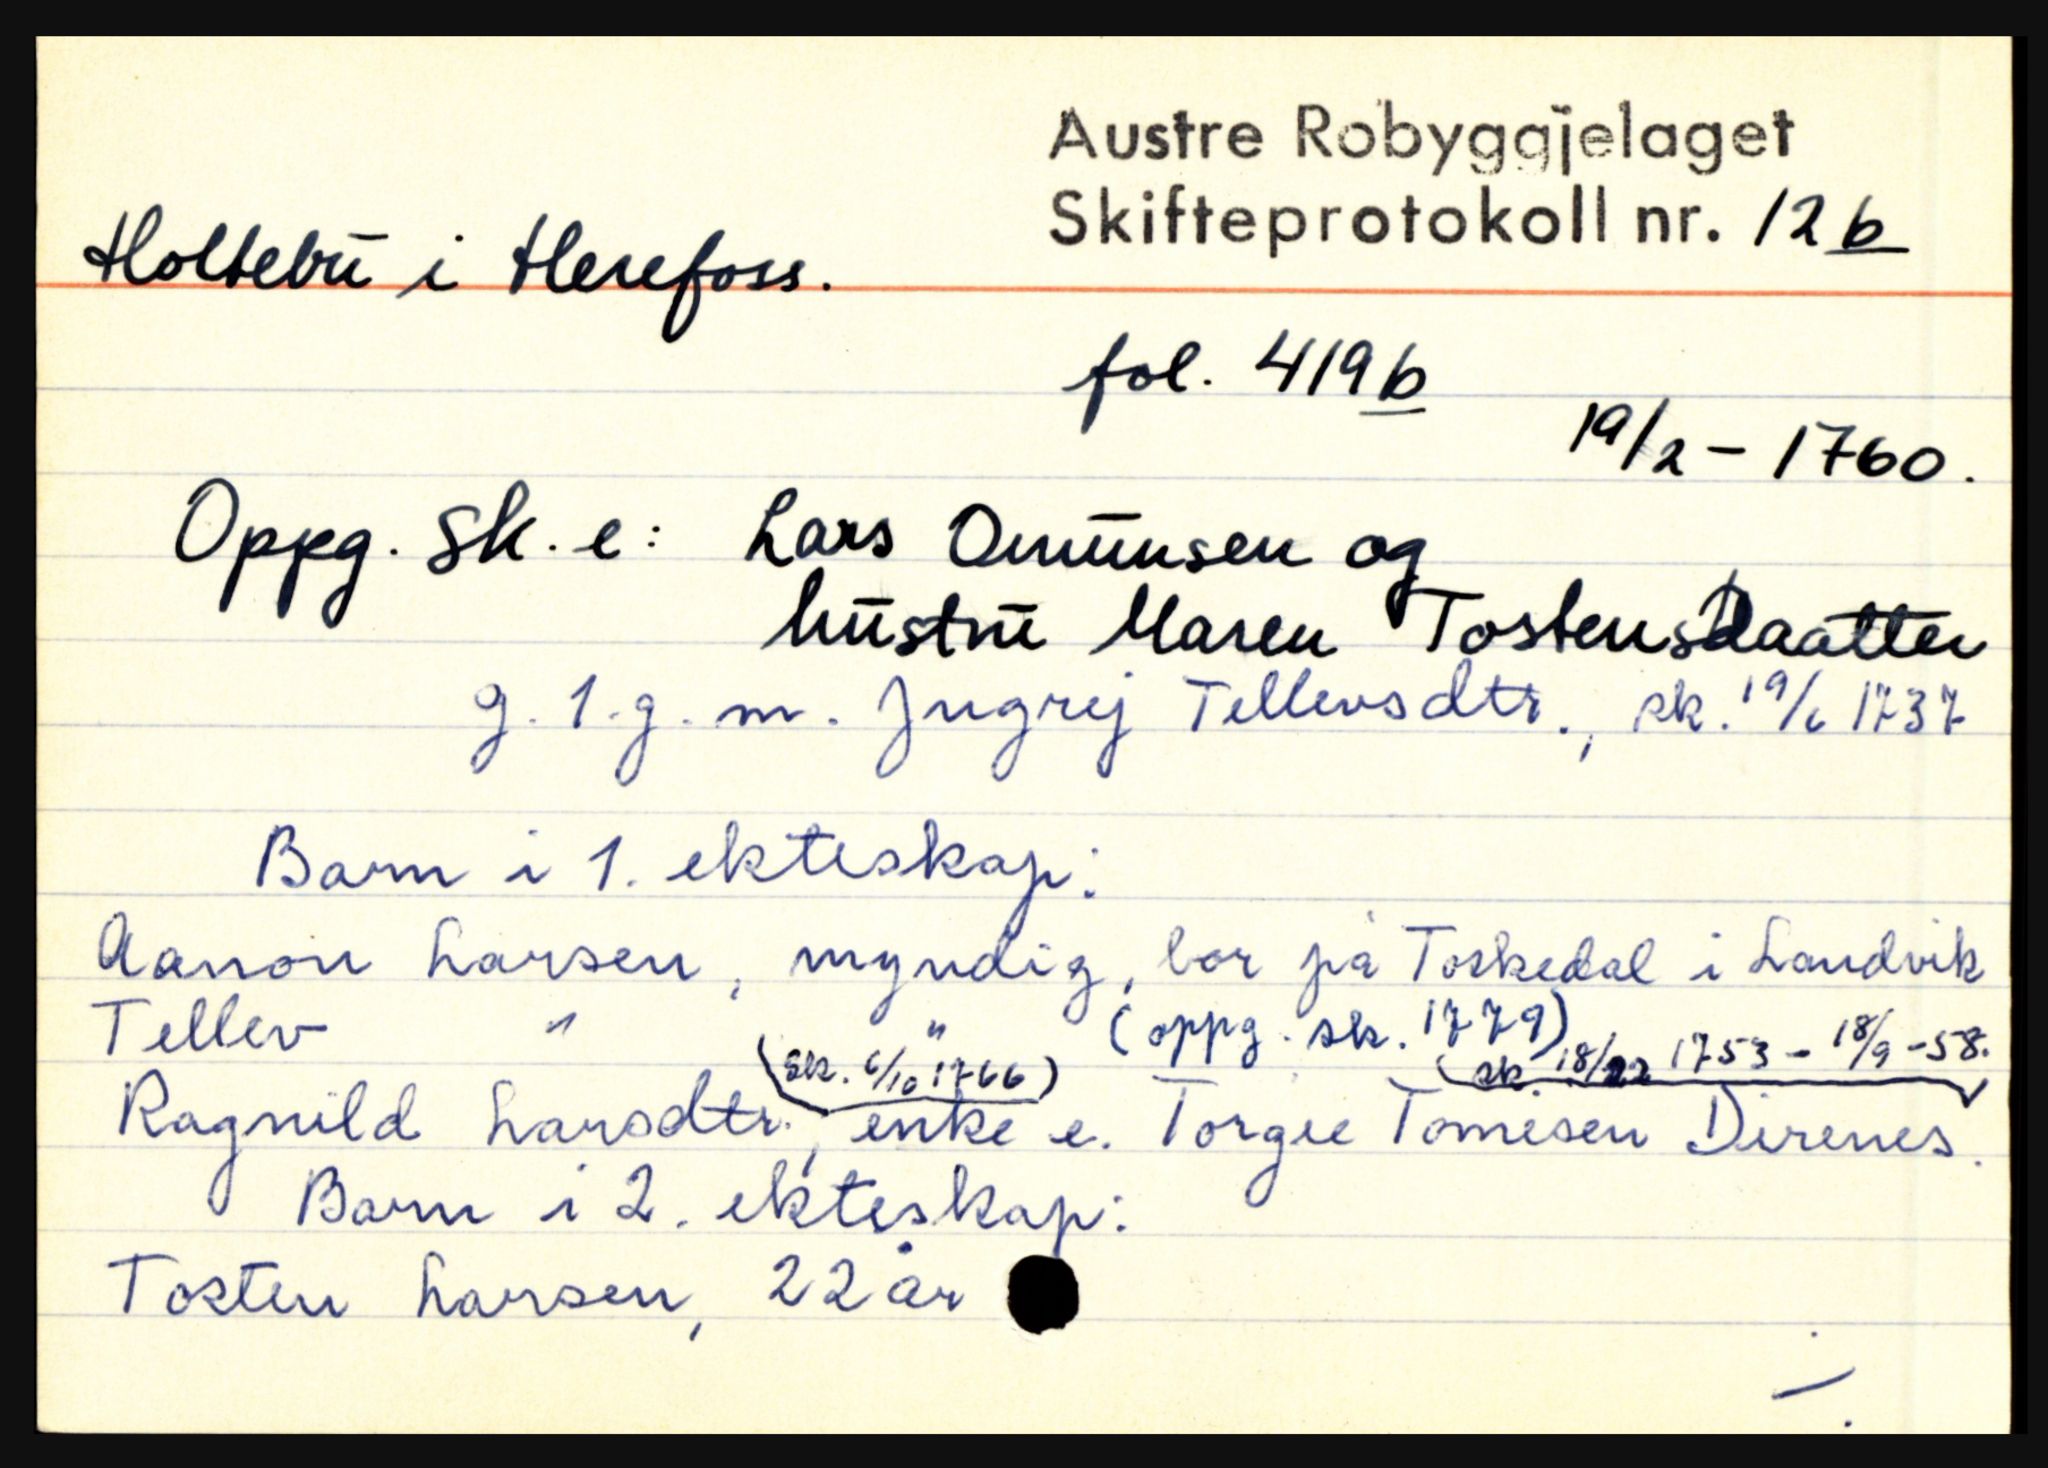 Austre Robyggjelaget
Skifteprotokoll nr. 12b
Holtebū i Herefoss.
fol. 419b
19/2 - 1760.
Oppg. Sk. e: Lars Omūnsen og
hūstrū Maren Tostensdaatter
g. 1. g. m. Jngrej Tellevsdtr., sk. 19/6 1737
Barn i 1. ekteskap:
Aanon Larsen, myndig, bor på Toskedal i Landvik
Tellev " " (oppg. sk. 1779)
(sk. 6/10 1766) (sk 18/22 1753 - 18/9 -58.
Ragnild Larsdtr., enke e. Torgie Tomesen Direnes.
Barn i 2. ekteskap:
Tosten Larsen, 22 år